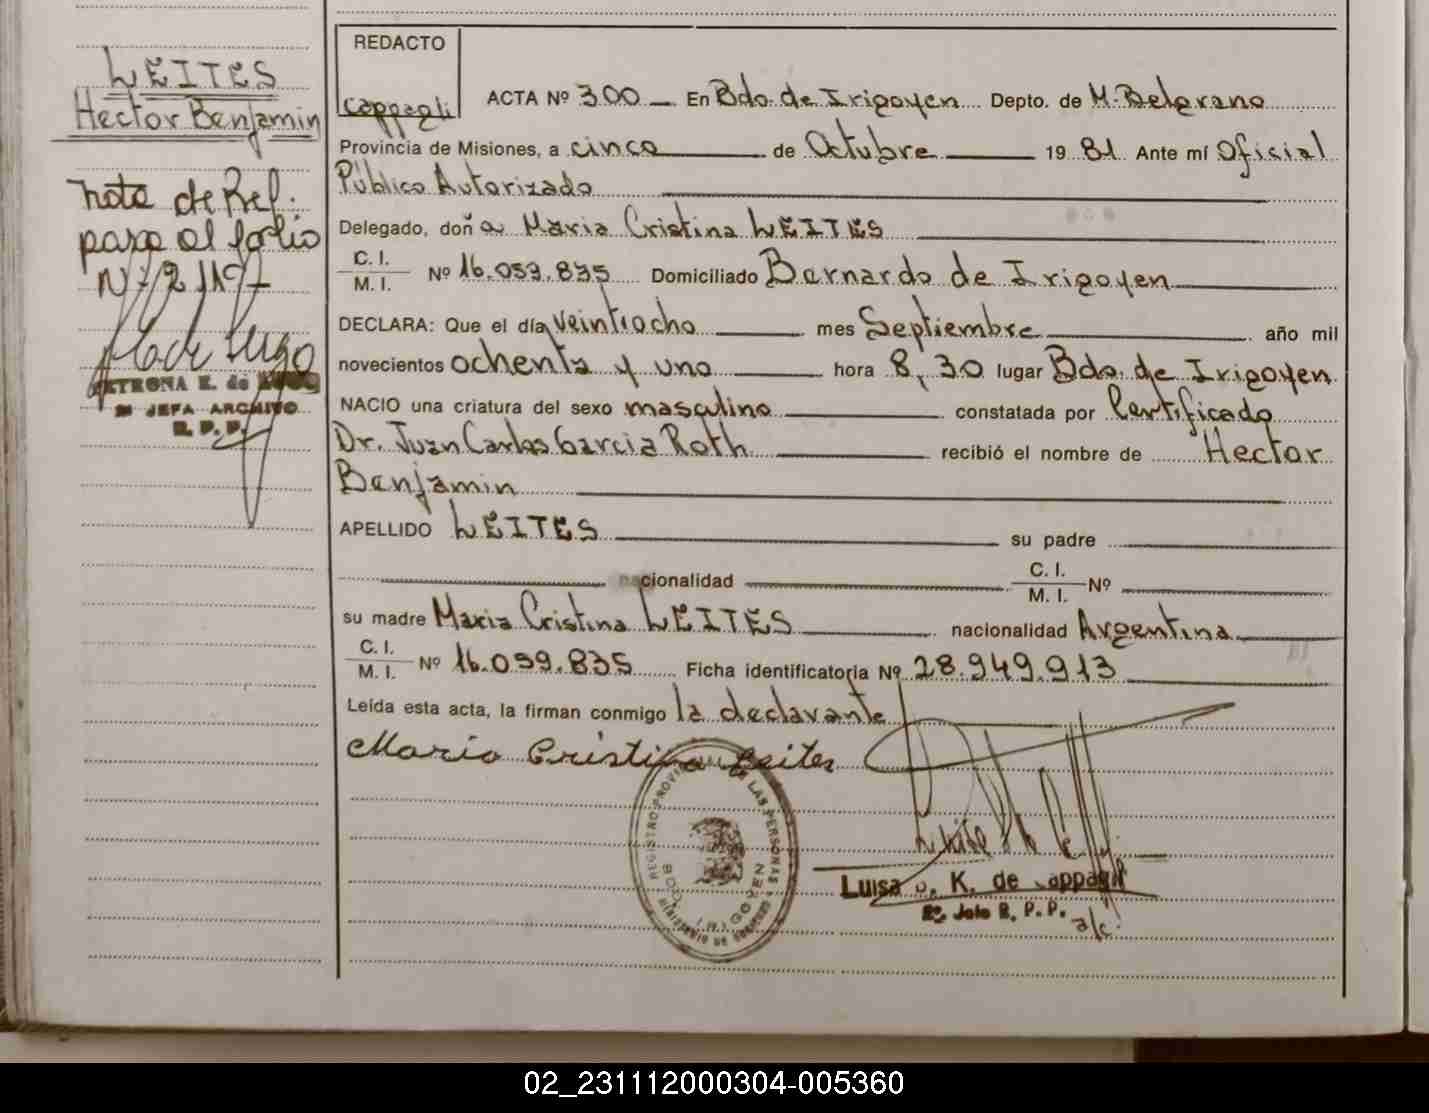 LEITES
Hector Benjamin
nota de Ref.
pasa al folio
PETRONA E. de
JEFA ARCHIVO
R. P. P.
REDACTO
Cappagli
ACTA Nº 300 En Bdo. de Irigoyen Depto. de M. Belgrano
Provincia de Misiones, a cinco de Octubre 19 81 Ante mí Oficial
Público Autorizado
Delegado, doña Maria Cristina LEITES
C. I.
M. I. Nº 16.059.835 Domiciliado Bernardo de Irigoyen
DECLARA: Que el día veintiocho mes Septiembre año mil
novecientos ochenta y uno hora 8,30 lugar Bdo. de Irigoyen
NACIO una criatura del sexo masculino constatada por Certificado
Dr. Juan Carlos Garcia Roth recibió el nombre de Hector
Benjamin
APELLIDO LEITES su padre
nacionalidad C. I.
M. I. Nº
su madre Maria Cristina LEITES nacionalidad Argentina
C. I.
M. I. Nº 16.059.835 Ficha identificatoria Nº 28.949.913
Leída esta acta, la firman conmigo la declarante
Maria Cristina Leites
REGISTRO PROVINCIAL DE LAS PERSONAS
BDO. IRIGOYEN
MINISTERIO DE GOBIERNO
Luisa K. de Cappagli
Jefe R. P. P.
a/c.
02_231112000304-005360